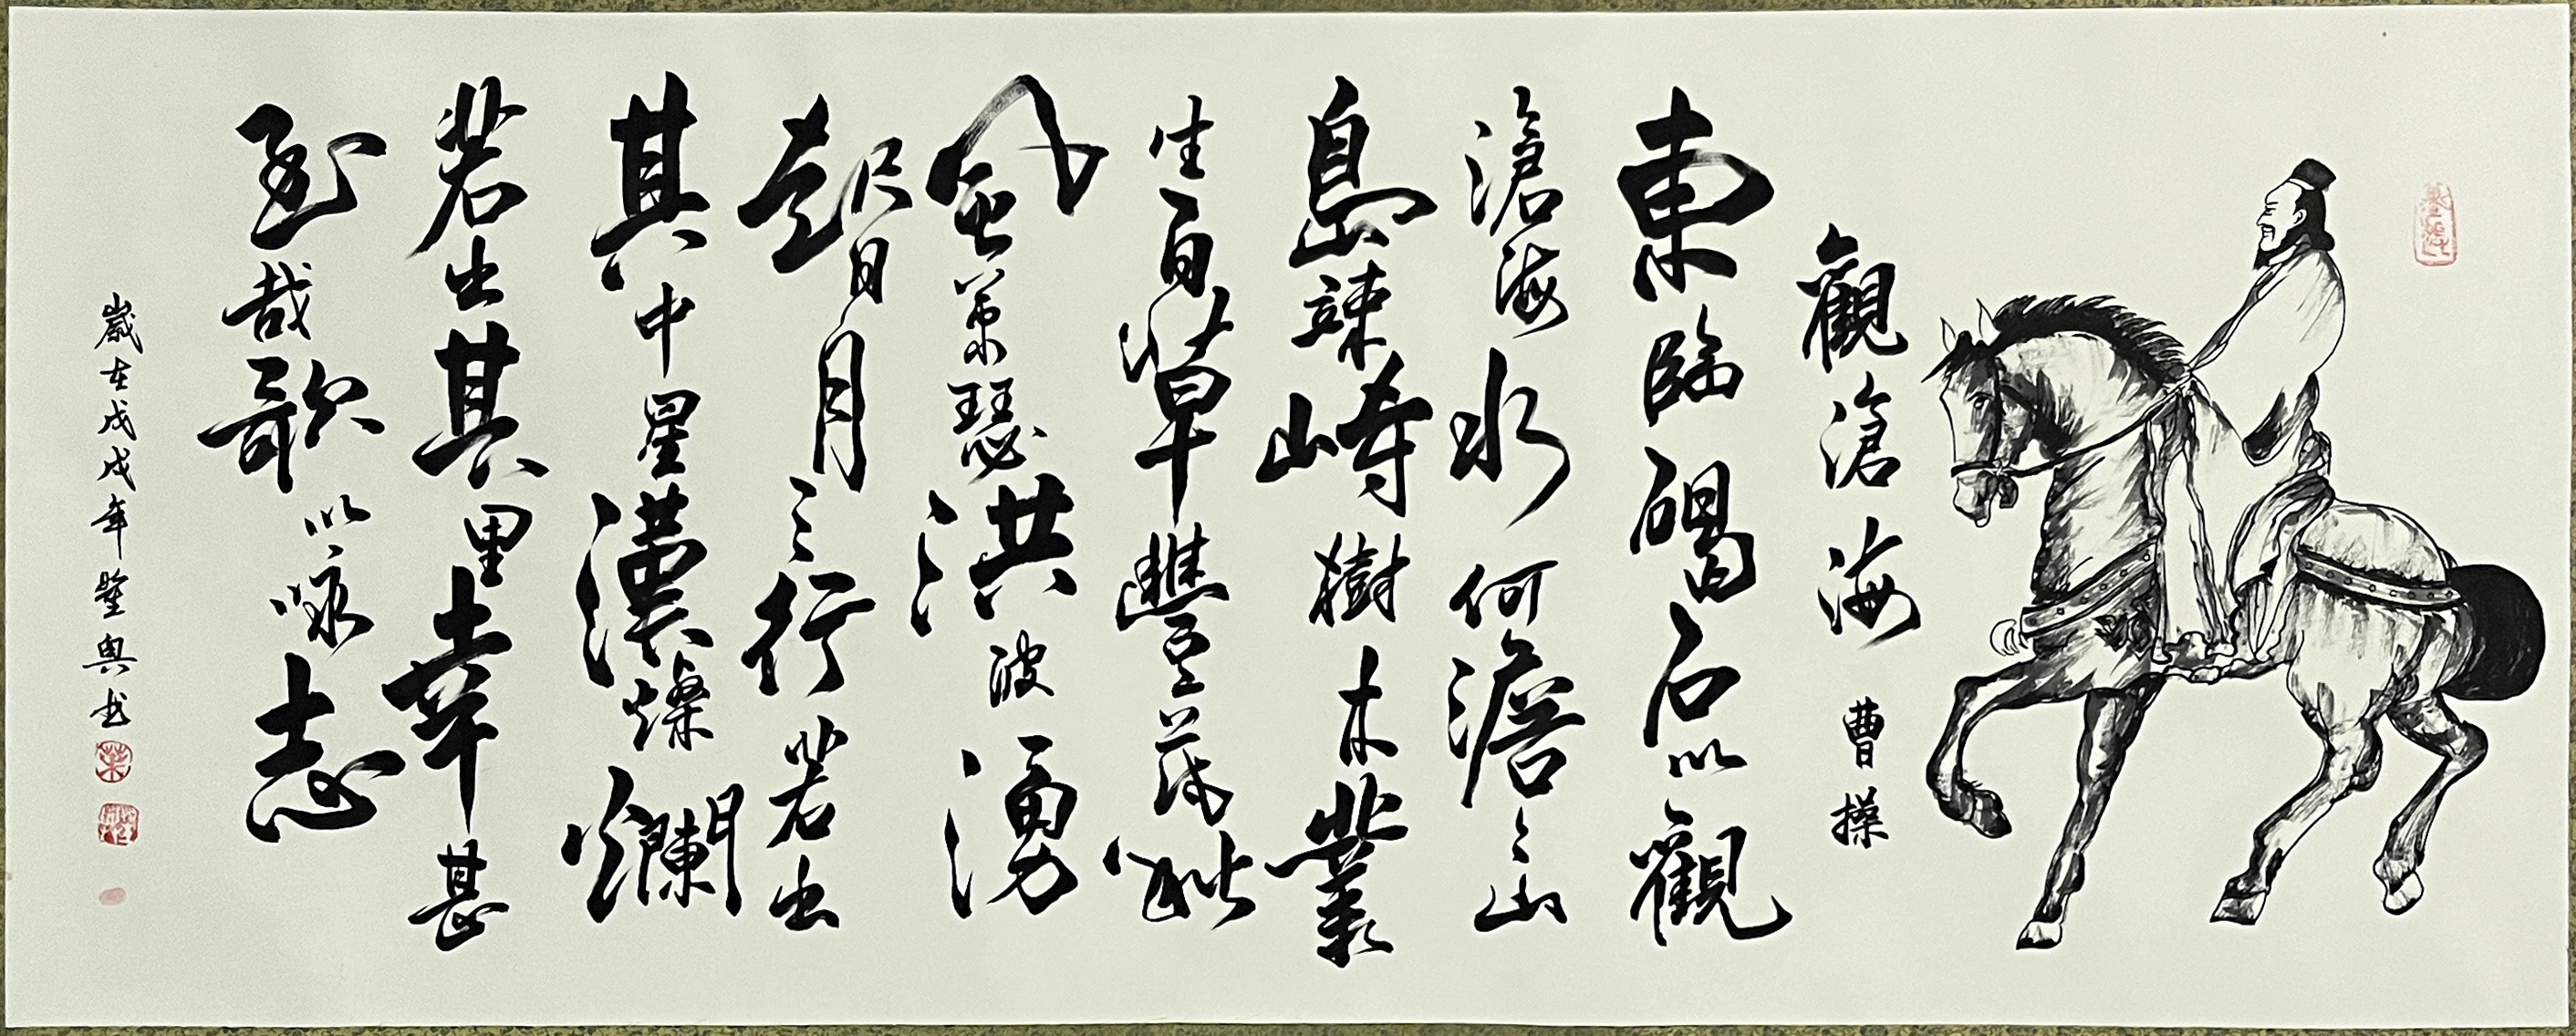 觀滄海 曹操
東臨碣石以觀
滄海水何澹々山
島竦峙樹木叢
生百草豐茂秋
風蕭瑟洪波湧
起日月之行若出
其中星漢燦爛
若出其里幸甚
至哉歌以詠志
歲在戊戌年书